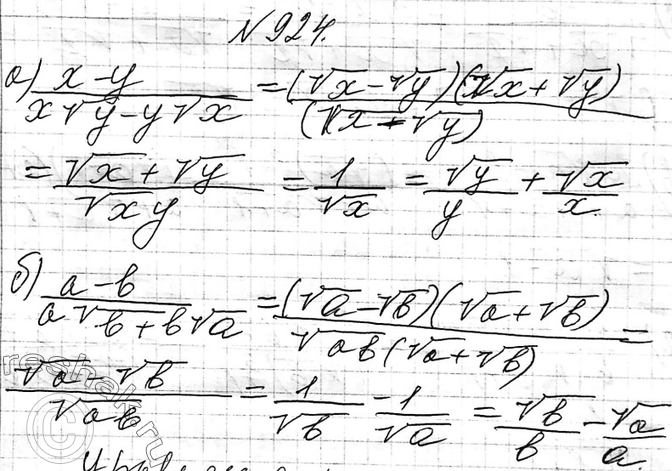 №924.
а) (x-y)/(x√y-y√x) = (√x-√y)(√x+√y)/(√x-√y)
= (√x+√y)/(√xy) = 1/√x = √y/y + √x/x.
б) (a-b)/(a√b+b√a) = (√a-√b)(√a+√b)/(√ab(√a+√b)) =
(√a-√b)/√ab = 1/√b - 1/√a = √b/b - √a/a.
reshak.ru